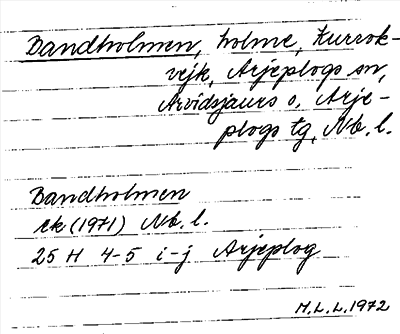 Bandholmen, holme, Kurrok-
vejk, Arjeplogs sn,
Arvidsjaurs o. Arje-
plogs tg, Nb. l.
Bandholmen
ek (1971) Nb. l.
25 H 4-5 i-j Arjeplog
M. L. L. 1972